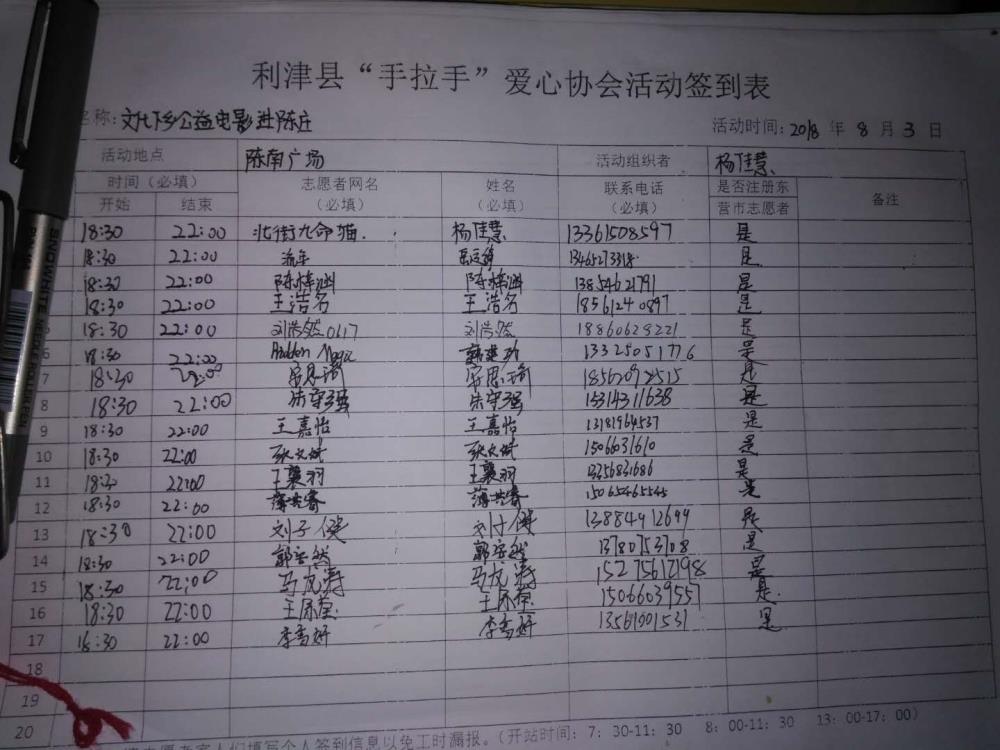 利津县“手拉手”爱心协会活动签到表
名称：文化下乡公益电影进陈庄 活动时间：2018 年 8 月 3 日
活动地点 陈南广场 活动组织者 杨佳慧
时间（必填） 志愿者网名（必填） 姓名（必填） 联系电话（必填） 是否注册东营市志愿者 备注
开始 结束
18:30 22:00 北街九命猫. 杨佳慧 13361508597 是
18:30 22:00 流年 13465273318 是
18:30 22:00 陈梓涵 陈梓涵 13854621791 是
18:30 22:00 王浩名 王浩名 18561240897 是
18:30 22:00 刘浩然0117 刘浩然 18860628221 是
6 18:30 22:00 13325051776 是
7 18:30 22:00 宋思琦 宋思琦 是
8 18:30 22:00 朱守强 朱守强 15314311638 是
9 18:30 22:00 王嘉怡 王嘉怡 13181964537 是
10 18:30 22:00 15066031610 是
11 22:00 王襄羽 王襄羽 13256831686 是
12 18:30 22:00 薄其睿 薄其睿 15065465545 是
13 18:30 22:00 刘子健 刘子健 13884912699 是
14 18:30 22:00 郭安然 郭安然 是
15 18:30 22:00 马凤涛 马凤涛 15275612198 是
16 18:30 22:00 15066039557 是
17 22:00 李雪妍 李雪妍 13561001531 是
18
19
20
填写个人签到信息以免工时漏报。（开站时间：7：30-11：30 8：00-11：30 13：00-17：00）